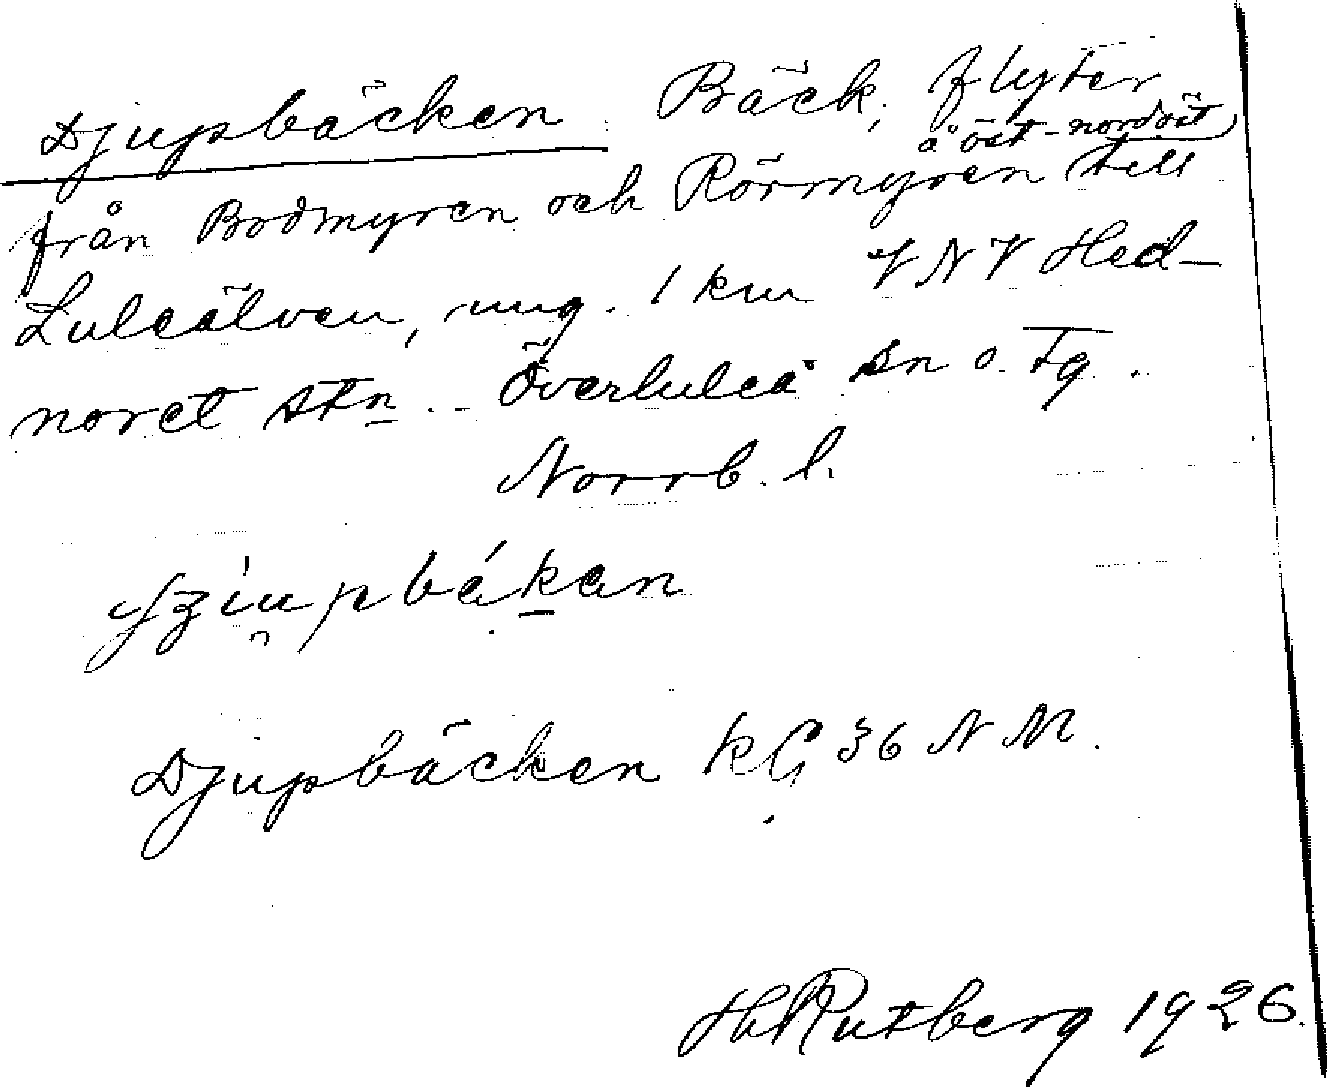 Djupbäcken. Bäck, flyter
åt öst-nordöst
från Bodmyren och Rörmyren till
Luleälven, ung. 1 km VNV Hed-
noret stn. Överluleå sn o. tg.
Norrb. l.
Djupbäcken kG 36 NM.
H Rutberg 1926.